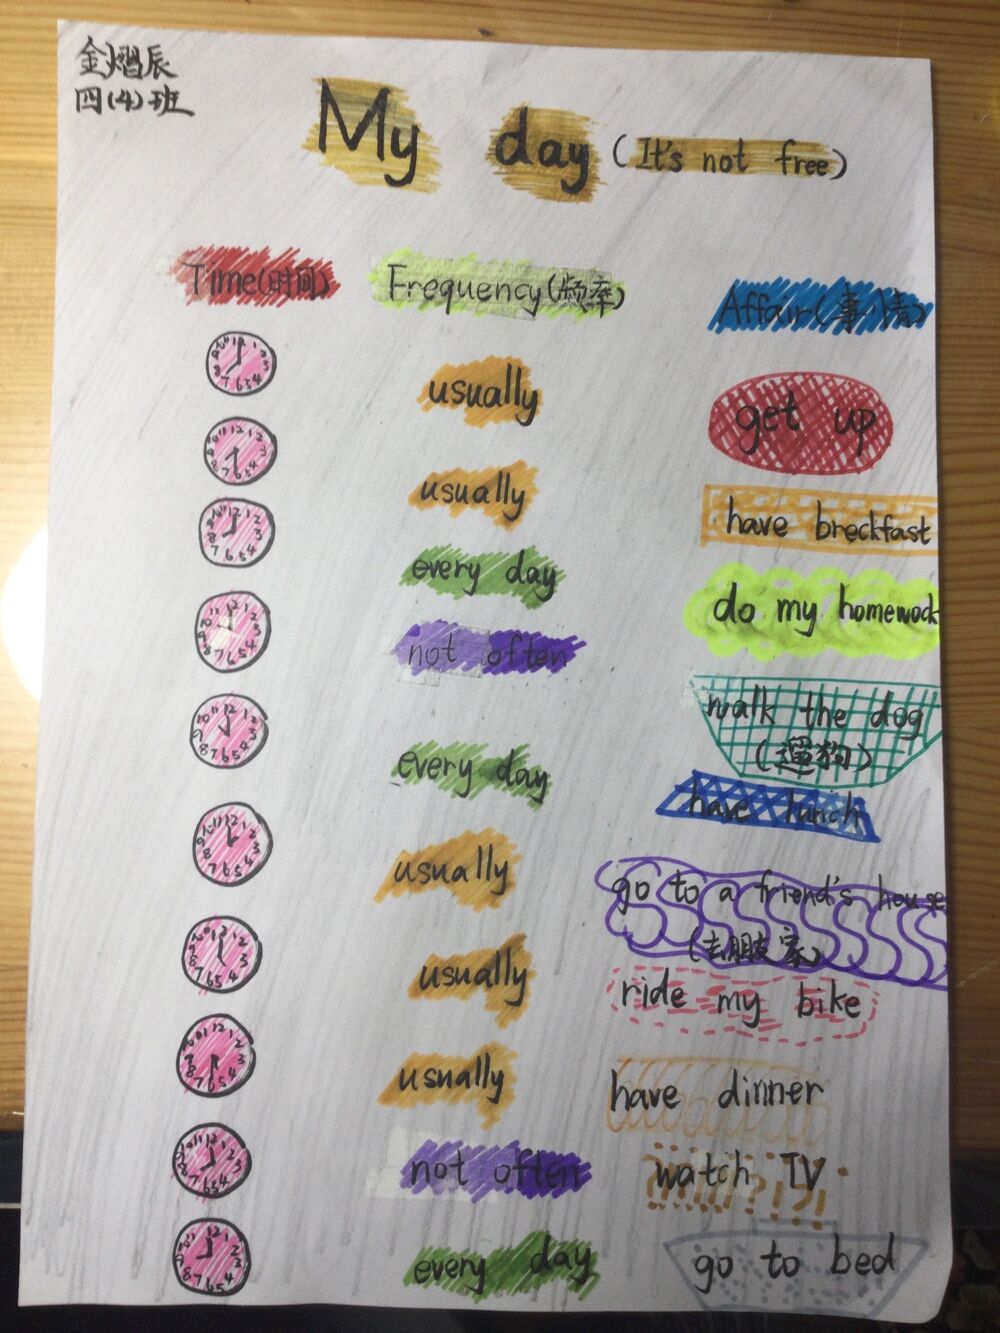 金熠辰
四(4)班
My day (It's not free)
Time(时间) Frequency(频率) Affair(事情)
usually get up
usually have breckfast
every day do my homewock
not often walk the dog
(遛狗)
every day have lunch
usually go to a friend's house
(去朋友家)
usually ride my bike
usually have dinner
not often watch TV
every day go to bed